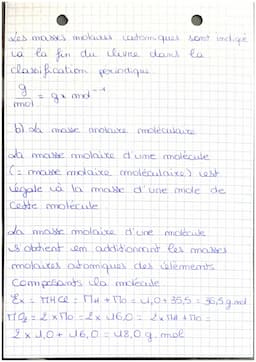 Les masses molaires atomiques sont indiqué
à la fin du livre dans la
classification périodique
g/mol = g x mol⁻¹
b) la masse molaire moléculaire
La masse molaire d'une molécule
(= masse molaire moléculaire) est
égale à la masse d'une mole de
cette molécule
La masse molaire d'une molécule
s'obtient en additionnant les masses
molaires atomiques des éléments
composants la molécule.
Ex = MHCl = MH + M = 1,0 + 35,5 = 36,5 g.mol
M = 2 x M = 2 x 16,0 = 2 x MH + M =
2 x 1,0 + 16,0 = 18,0 g.mol